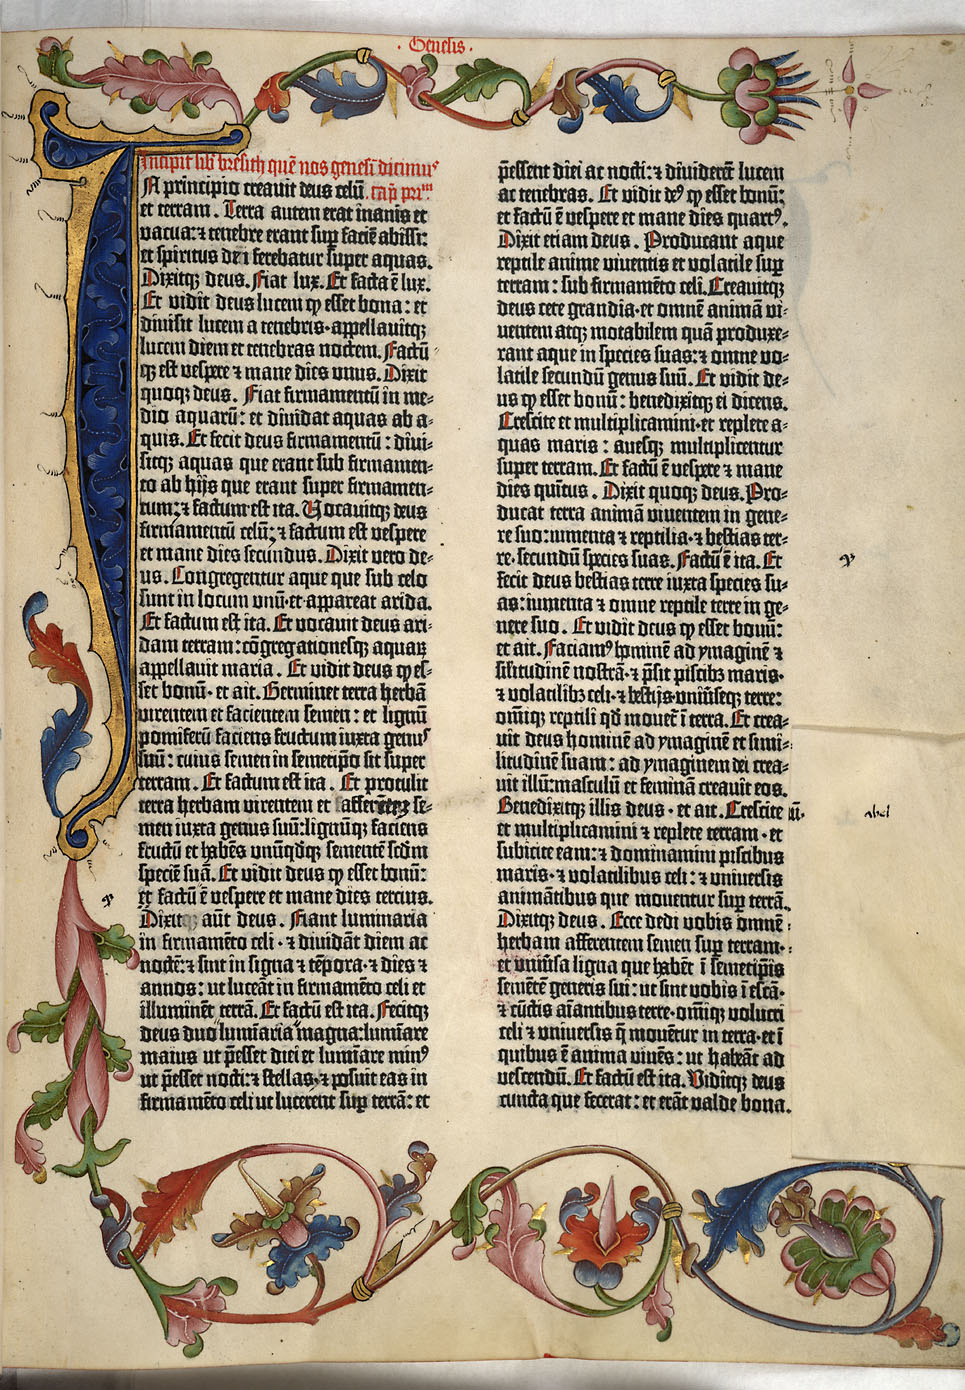 Genesis.
Incipit lib̄ bresith quē nos genesī dicimus
In principio creavit deus celū. cap̄ prīm
et terram. Terra autem erat inanis et
vacua: ⁊ tenebre erant sup̄ faciē abissi:
et spiritus dei ferebatur super aquas.
Dixitqꝫ deus. Fiat lux. Et facta ē lux.
Et vidit deus lucem ꝙ esset bona: et
divisit lucem a tenebris· appellavitqꝫ
lucem diem et tenebras noctem. Factū
qꝫ est vespere ⁊ mane dies unus. Dixit
quoqꝫ deus. Fiat firmamentū in me-
dio aquarū: et dividat aquas ab a-
quis. Et fecit deus firmamentū: divi-
sitqꝫ aquas que erant sub firmamen-
to ab hijs que erant super firmamen-
tum: ⁊ factum est ita. Vocavitqꝫ deus
firmamentū celū: ⁊ factum est vespere
et mane dies secundus. Dixit vero de-
us. Congregentur aque que sub celo
sunt in locum unū· et appareat arida.
Et factum est ita. Et vocavit deus ari-
dam terram: cōgregationesqꝫ aquarꝫ
appellavit maria. Et vidit deus ꝙ es-
set bonū· et ait. Germinet terra herbā
virentem et facientem semen: et lignū
pomiferū faciens fructum iuxta genus
suū: cuius semen in semetipo sit super
terram. Et factum est ita. Et protulit
terra herbam virentem et se-
men iuxta genus suū: lignūqꝫ faciens
fructū et habēs unūqdqꝫ sementē scdm
speciē suā. Et vidit deus ꝙ esset bonū:
et factū ē vespere et mane dies tercius.
Dixitqꝫ aūt deus. Fiant luminaria
in firmamēto celi· ⁊ dividāt diem ac
noctē: ⁊ sint in signa ⁊ tēpora· ⁊ dies ⁊
annos: ut luceāt in firmamēto celi et
illuminēt terrā. Et factū est ita. Fecitqꝫ
deus duo luminaria magna: lumīare
maius ut p̄esset diei et lumīare minꝰ
ut p̄esset nocti: ⁊ stellas· ⁊ posuit eas in
firmamēto celi ut lucerent sup̄ terrā: et
p̄essent diei ac nocti: ⁊ dividerēt lucem
ac tenebras. Et vidit deꝰ ꝙ esset bonū:
et factū ē vespere et mane dies quartꝰ.
Dixit etiam deus. Producant aque
reptile anime viventis et volatile sup̄
terram: sub firmamēto celi. Creavitqꝫ
deus cete grandia· et omnē animā vi-
ventem atqꝫ motabilem quā produxe-
rant aque in species suas: ⁊ omne vo-
latile secundū genus suū. Et vidit de-
us ꝙ esset bonū: benedixitqꝫ ei dicens.
Crescite et multiplicamini· et replete a-
quas maris: avesqꝫ multiplicentur
super terram. Et factū ē vespere ⁊ mane
dies quītus. Dixit quoqꝫ deus. Pro-
ducat terra animā viventem in gene-
re suo: iumenta ⁊ reptilia· ⁊ bestias ter-
re· secundū species suas. Factū ē ita. Et
fecit deus bestias terre iuxta species su-
as: iumenta ⁊ omne reptile terre in ge-
nere suo. Et vidit deus ꝙ esset bonū:
et ait. Faciamꝰ hominē ad ymaginē ⁊
silitudinē nostrā· ⁊ p̄sit piscibꝫ maris·
⁊ volatilibꝫ celi· ⁊ bestijs univ̄seqꝫ terre:
omīqꝫ reptili qd movet ī terra. Et crea-
vit deus hominē ad ymaginē et simi-
litudinē suam: ad ymaginem dei crea-
vit illū: masculū et feminā creavit eos.
Benedixitqꝫ illis deus· et ait. Crescite
et multiplicamini ⁊ replete terram· et
subicite eam: ⁊ dominamini piscibus
maris· ⁊ volatilibus celi: ⁊ universis
animātibus que moventur sup̄ terrā.
Dixitqꝫ deus. Ecce dedi vobis omnē
herbam afferentem semen sup̄ terram·
et univ̄sa ligna que habēt ī semetip̄is
semētē generis sui: ut sint vobis ī escā·
⁊ cūctis aīantibus terre· omīqꝫ volucri
celi ⁊ universis q̄ movētur in terra· et ī
quibus ē anima vivēs: ut habeāt ad
vescendū. Et factū est ita. Viditqꝫ deus
cuncta que fecerat: et erāt valde bona.